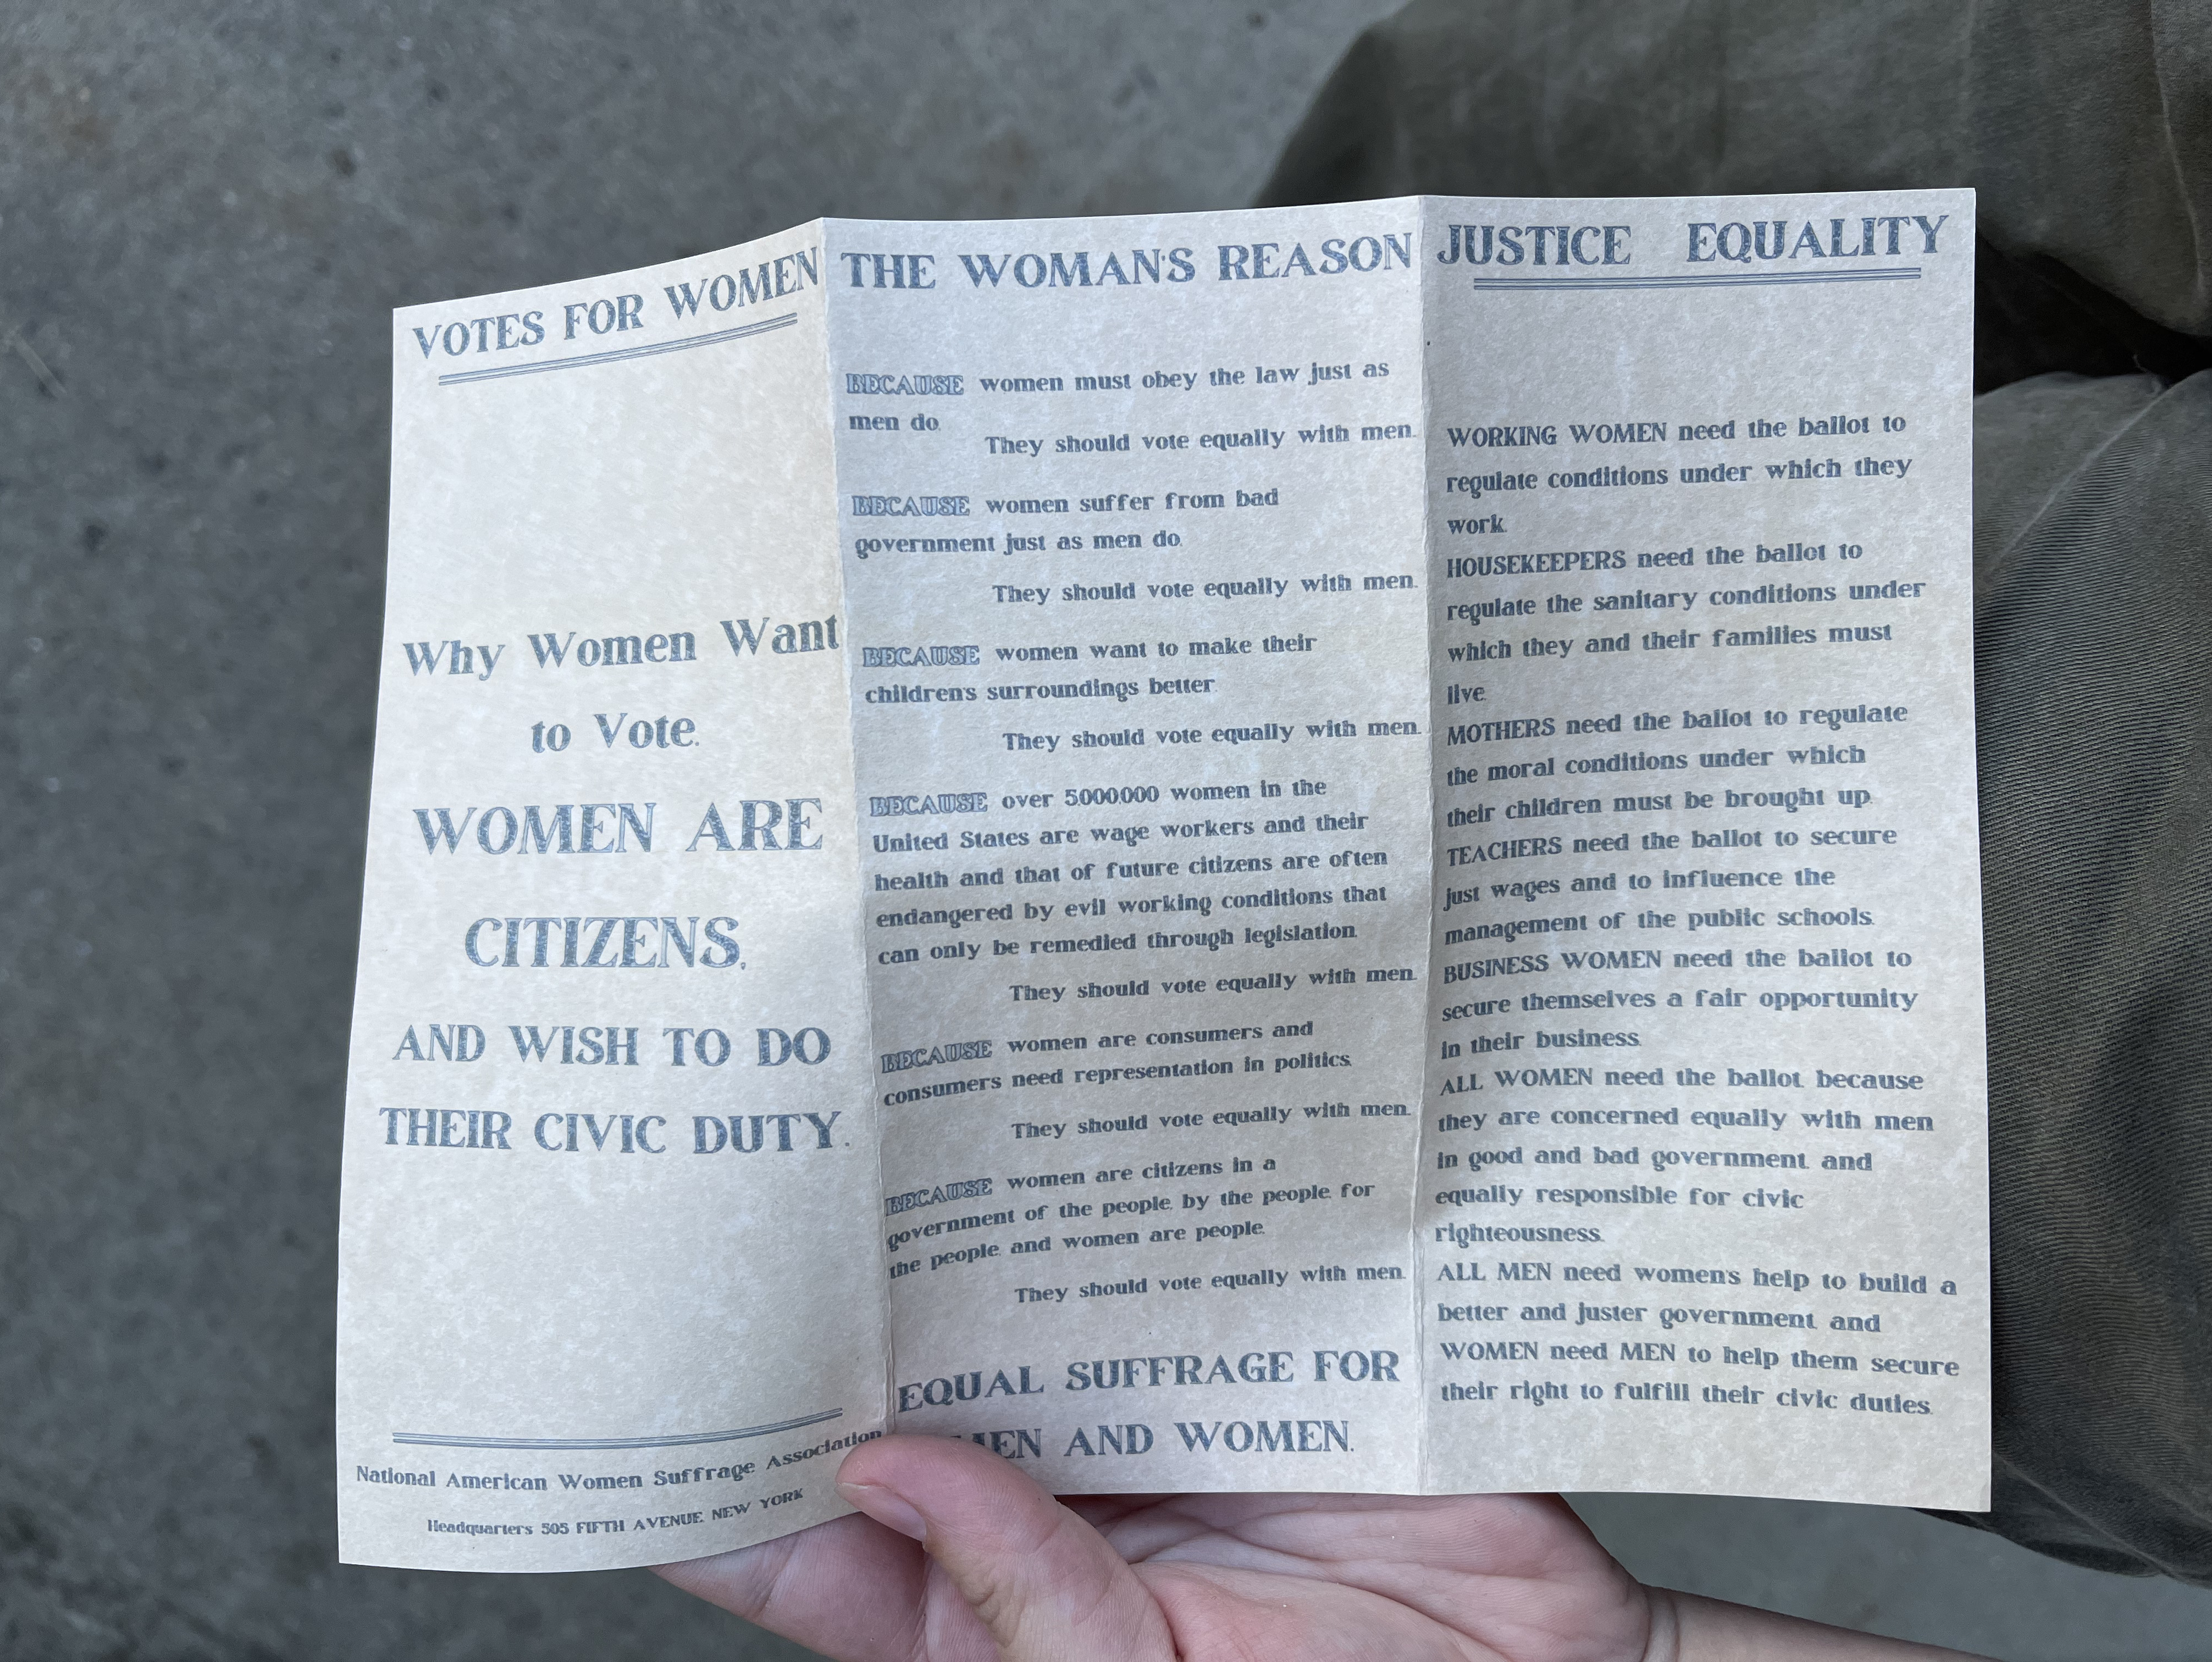 VOTES FOR WOMEN
Why Women Want
to Vote.
WOMEN ARE
CITIZENS,
AND WISH TO DO
THEIR CIVIC DUTY.
National American Women Suffrage Association
Headquarters 505 FIFTH AVENUE, NEW YORK
THE WOMAN'S REASON
BECAUSE women must obey the law just as
men do.
They should vote equally with men.
BECAUSE women suffer from bad
government just as men do.
They should vote equally with men.
BECAUSE women want to make their
children's surroundings better.
They should vote equally with men.
BECAUSE over 5,000,000 women in the
United States are wage workers and their
health and that of future citizens are often
endangered by evil working conditions that
can only be remedied through legislation.
They should vote equally with men.
BECAUSE women are consumers and
consumers need representation in politics.
They should vote equally with men.
BECAUSE women are citizens in a
government of the people, by the people, for
the people, and women are people.
They should vote equally with men.
EQUAL SUFFRAGE FOR
MEN AND WOMEN.
JUSTICE EQUALITY
WORKING WOMEN need the ballot to
regulate conditions under which they
work.
HOUSEKEEPERS need the ballot to
regulate the sanitary conditions under
which they and their families must
live.
MOTHERS need the ballot to regulate
the moral conditions under which
their children must be brought up.
TEACHERS need the ballot to secure
just wages and to influence the
management of the public schools.
BUSINESS WOMEN need the ballot to
secure themselves a fair opportunity
in their business.
ALL WOMEN need the ballot, because
they are concerned equally with men
in good and bad government, and
equally responsible for civic
righteousness.
ALL MEN need women's help to build a
better and juster government, and
WOMEN need MEN to help them secure
their right to fulfill their civic duties.